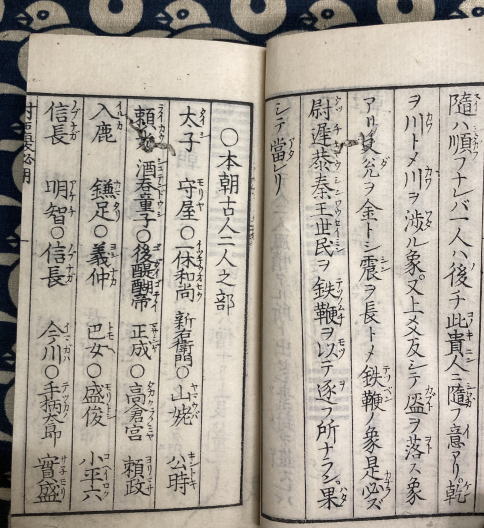 隨ハ順フナレバ一人ハ後チ此貴人ニ隨フ意アリ乾
ヲ川トメ川ヲ渉ル象又上爻友シテ盔ヲ落ス象
アリ兌ヲ金トシ震ヲ長トメ鉄鞭ノ象是必ズ
尉遲𢙢秦王世民ヲ鉄鞭ヲ以テ逐フ所ナラン果
シテ當レリ
○本朝古人二人之部
太子 守屋○一休和尚 新右衛門○山姥 公時
頼 酒呑童子○後醍醐帝 正成○高倉宮 頼政
入鹿 鎌足○義仲 巴女○盛俊 小平六
信長 明智○信長 今川○手柄太郎 實盛